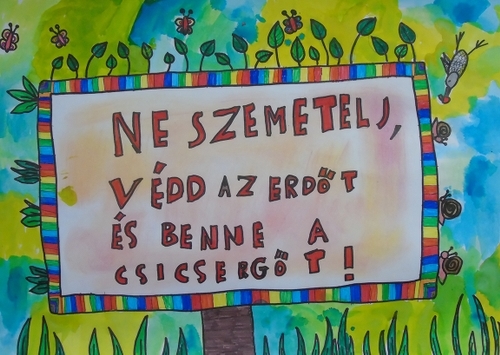 NE SZEMETELJ,
VÉDD AZ ERDŐT
ÉS BENNE A
CSICSERGŐT!